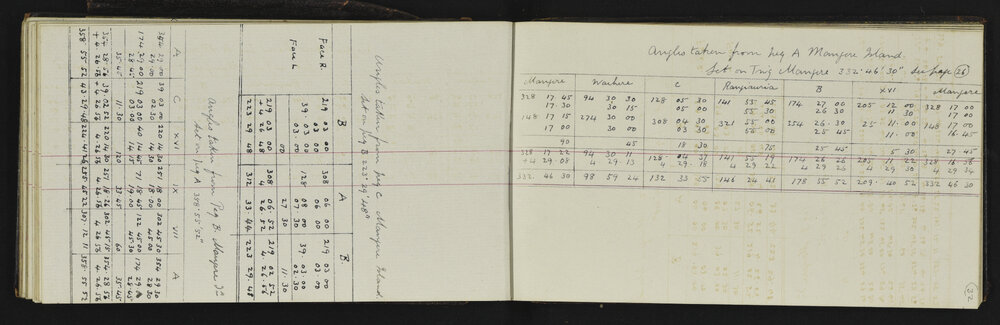 Angles taken from Peg C Mangere Island.
Set on Peg B 223° 29' 48"
B A B.
Face R. 219 03 00 308 06 00 219 03 00
03 00 06 00 03 00
Face L 39.03.00 128 08 00 39.03.00
03.00 07 30 02.30
00 27 30 11.30
219 03 00 308 06.52 219 02 52
+ 4 26 48 4 26.52 4 26.56
223 29 48 312 33.44 223 29.48
Angles taken from Peg B. Mangere Is
Set on Peg A 358° 55' 52"
A C XVI IX VII A
354 29 00 39 03 00 220 14 30 257 18 00 302 45 30 354 29 30
29.00 02 30 14 30 18 00 45 00 28 30
174 29 00 219 03 00 40 14 18 45 122 45 00 174 29
28.45 03 00 14 15 19 00 45.30 28.45
35.45 11.30 120 37 45 60 35.45
354 28 56 39 02 52 220 14 30 302 45 15 354 28 56
+ 4 26 4 26 4 26 4 26 56
358 55 52 43 29 48 224 41 26 307 12 11 358 55 52
Angles taken from Peg A Mangere Island.
Set on Trig Mangere 332° 46' 30" See page 26
Mangere Waihere C Rangiauria B XVI Mangere
328 17 45 94 30 30 128 05 30 141 55 45 174 27 00 205 12 00 328 17 00
17.30 30 15 05 00 55 30 26 30 11 30 17 00
148 17 15 274 30 00 308 04 30 321 55 00 354 26 30 25 11 00 148 17 00
17 00 30 00 03 30 55 00 25 45 11.00 16 45
90 45 18 30 75 25 45 5 30 27 45
328 17 22 94 30 11 128 04 37 141 55 19 174 26 26 205 11 22 328 16 56
+ 4 29 08 4 29 13 4 29 18 4 29 22 4 29 26 4 29 30 4 29 34
332. 46 30 98 59 24 132 33 55 146 24 41 178 55 52 209. 40 52 332 46 30
32